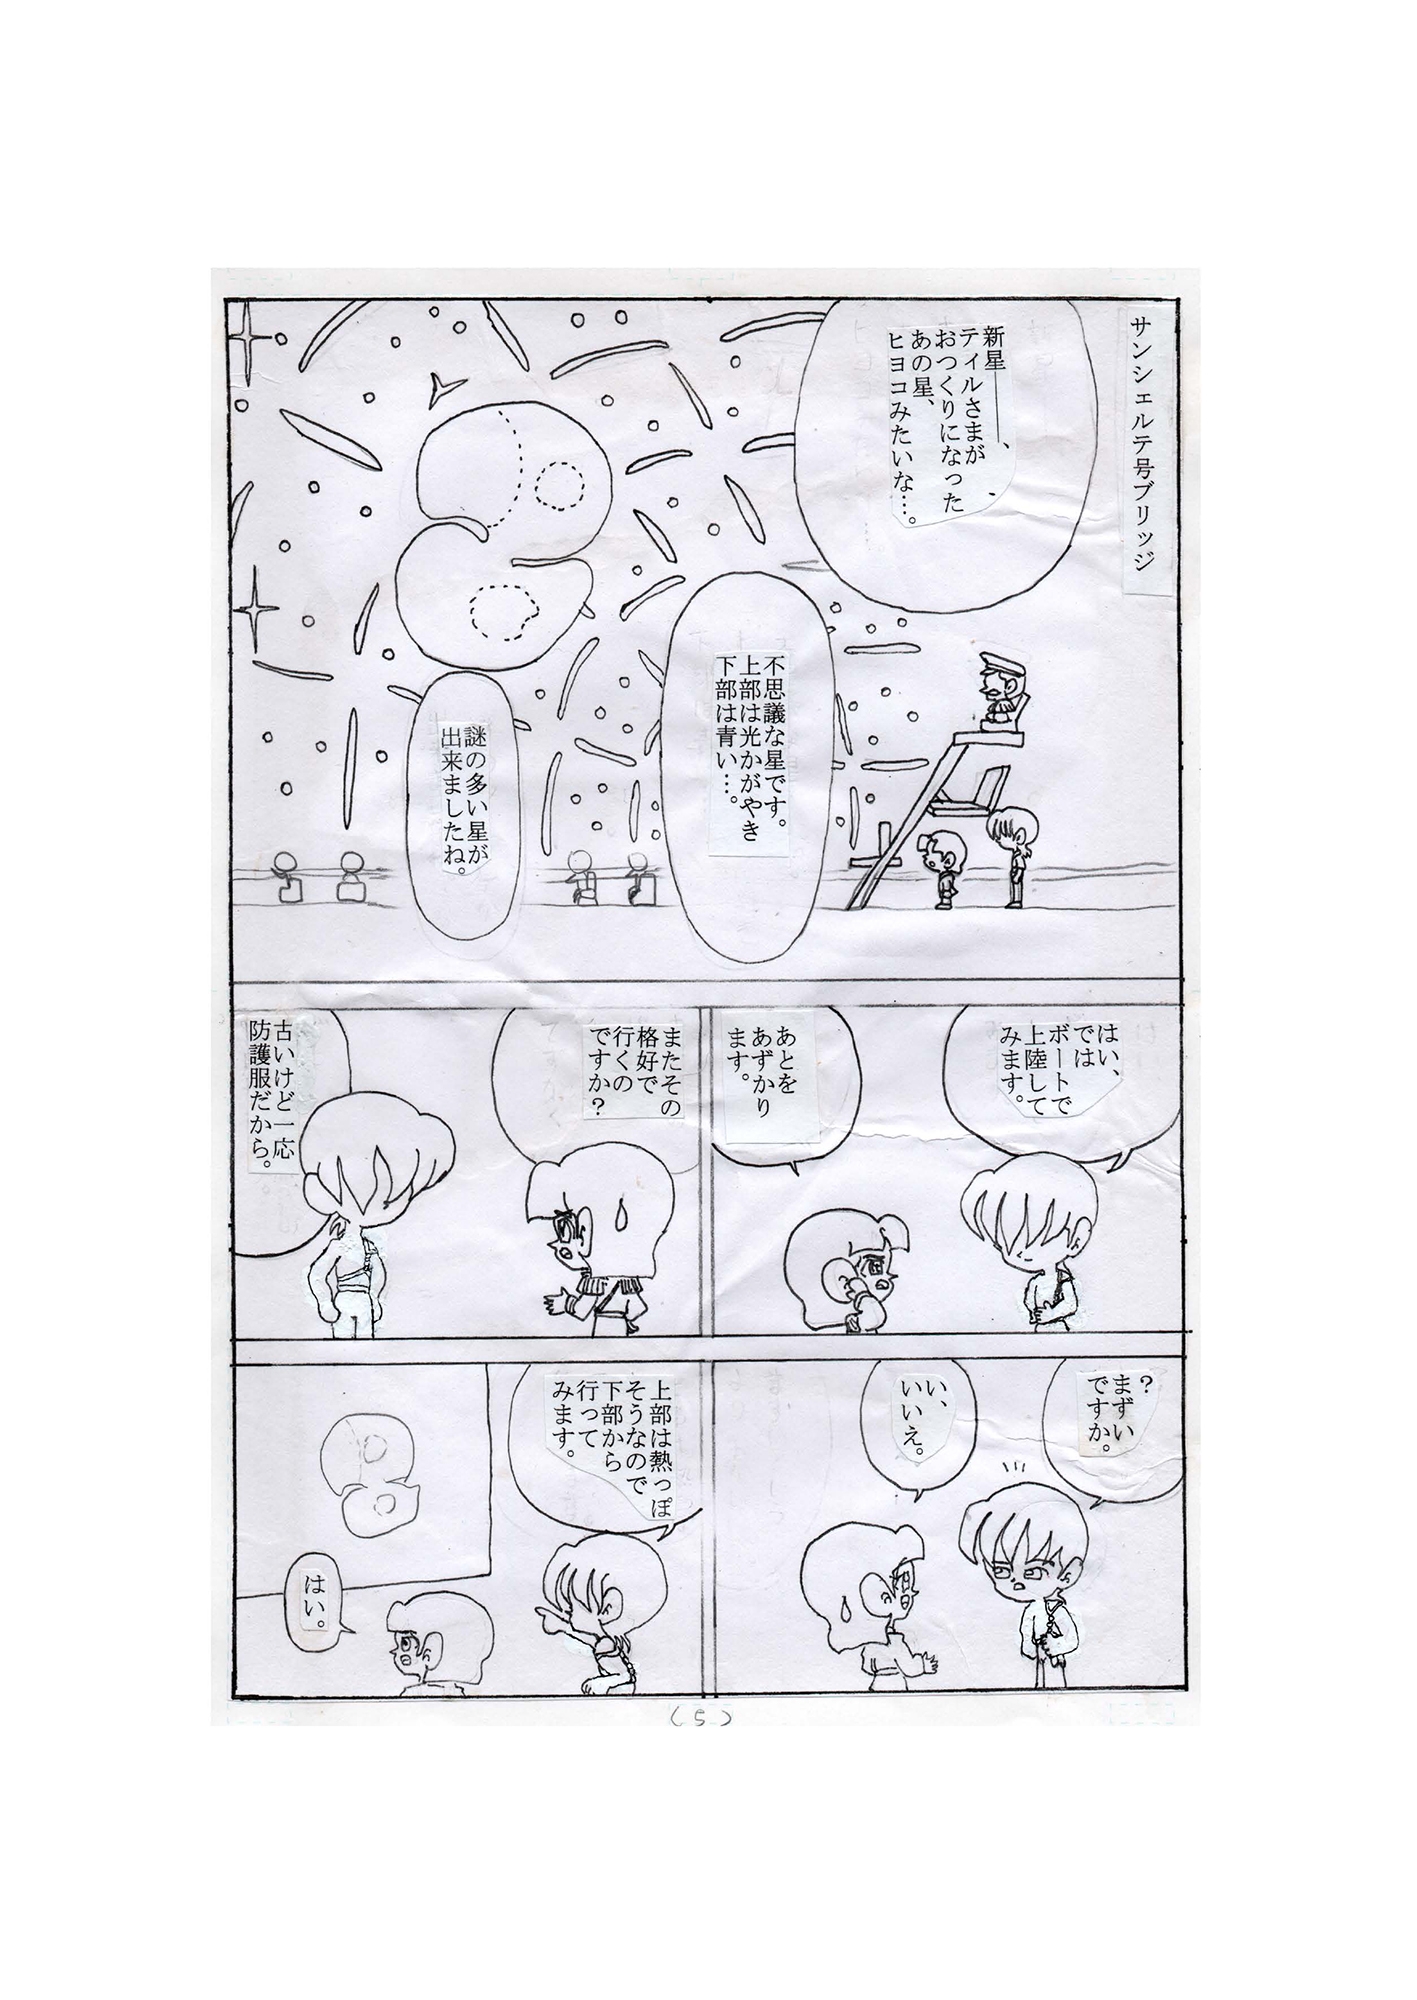 サンシェルテ号ブリッジ
新星――、
ティルさまが
おつくりになった
あの星、
ヒヨコみたいな…。
不思議な星です。
上部は光かがやき
下部は青い…。
謎の多い星が
出来ましたね。
はい、
では
ボートで
上陸して
みます。
あとを
あずかり
ます。
またその
格好で
行くの
ですか?
古いけど一応
防護服だから。
?
まずい
ですか。
い、
いいえ。
上部は熱っぽ
そうなので
下部から
行って
みます。
はい。
(5)